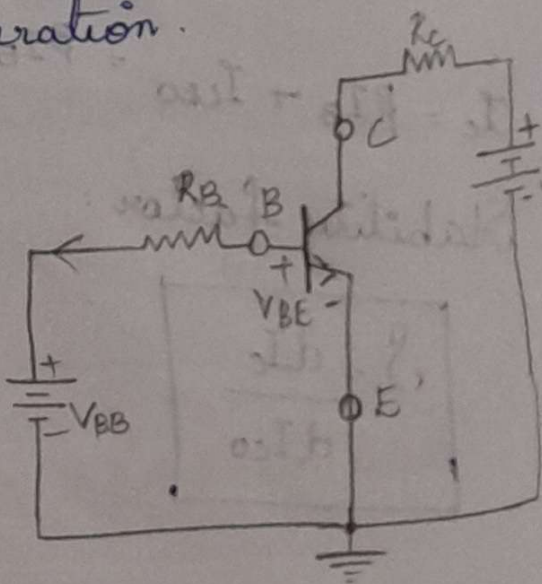 uration.
Rc
+
C
RB B
+
VBE -
+
- VBB
E